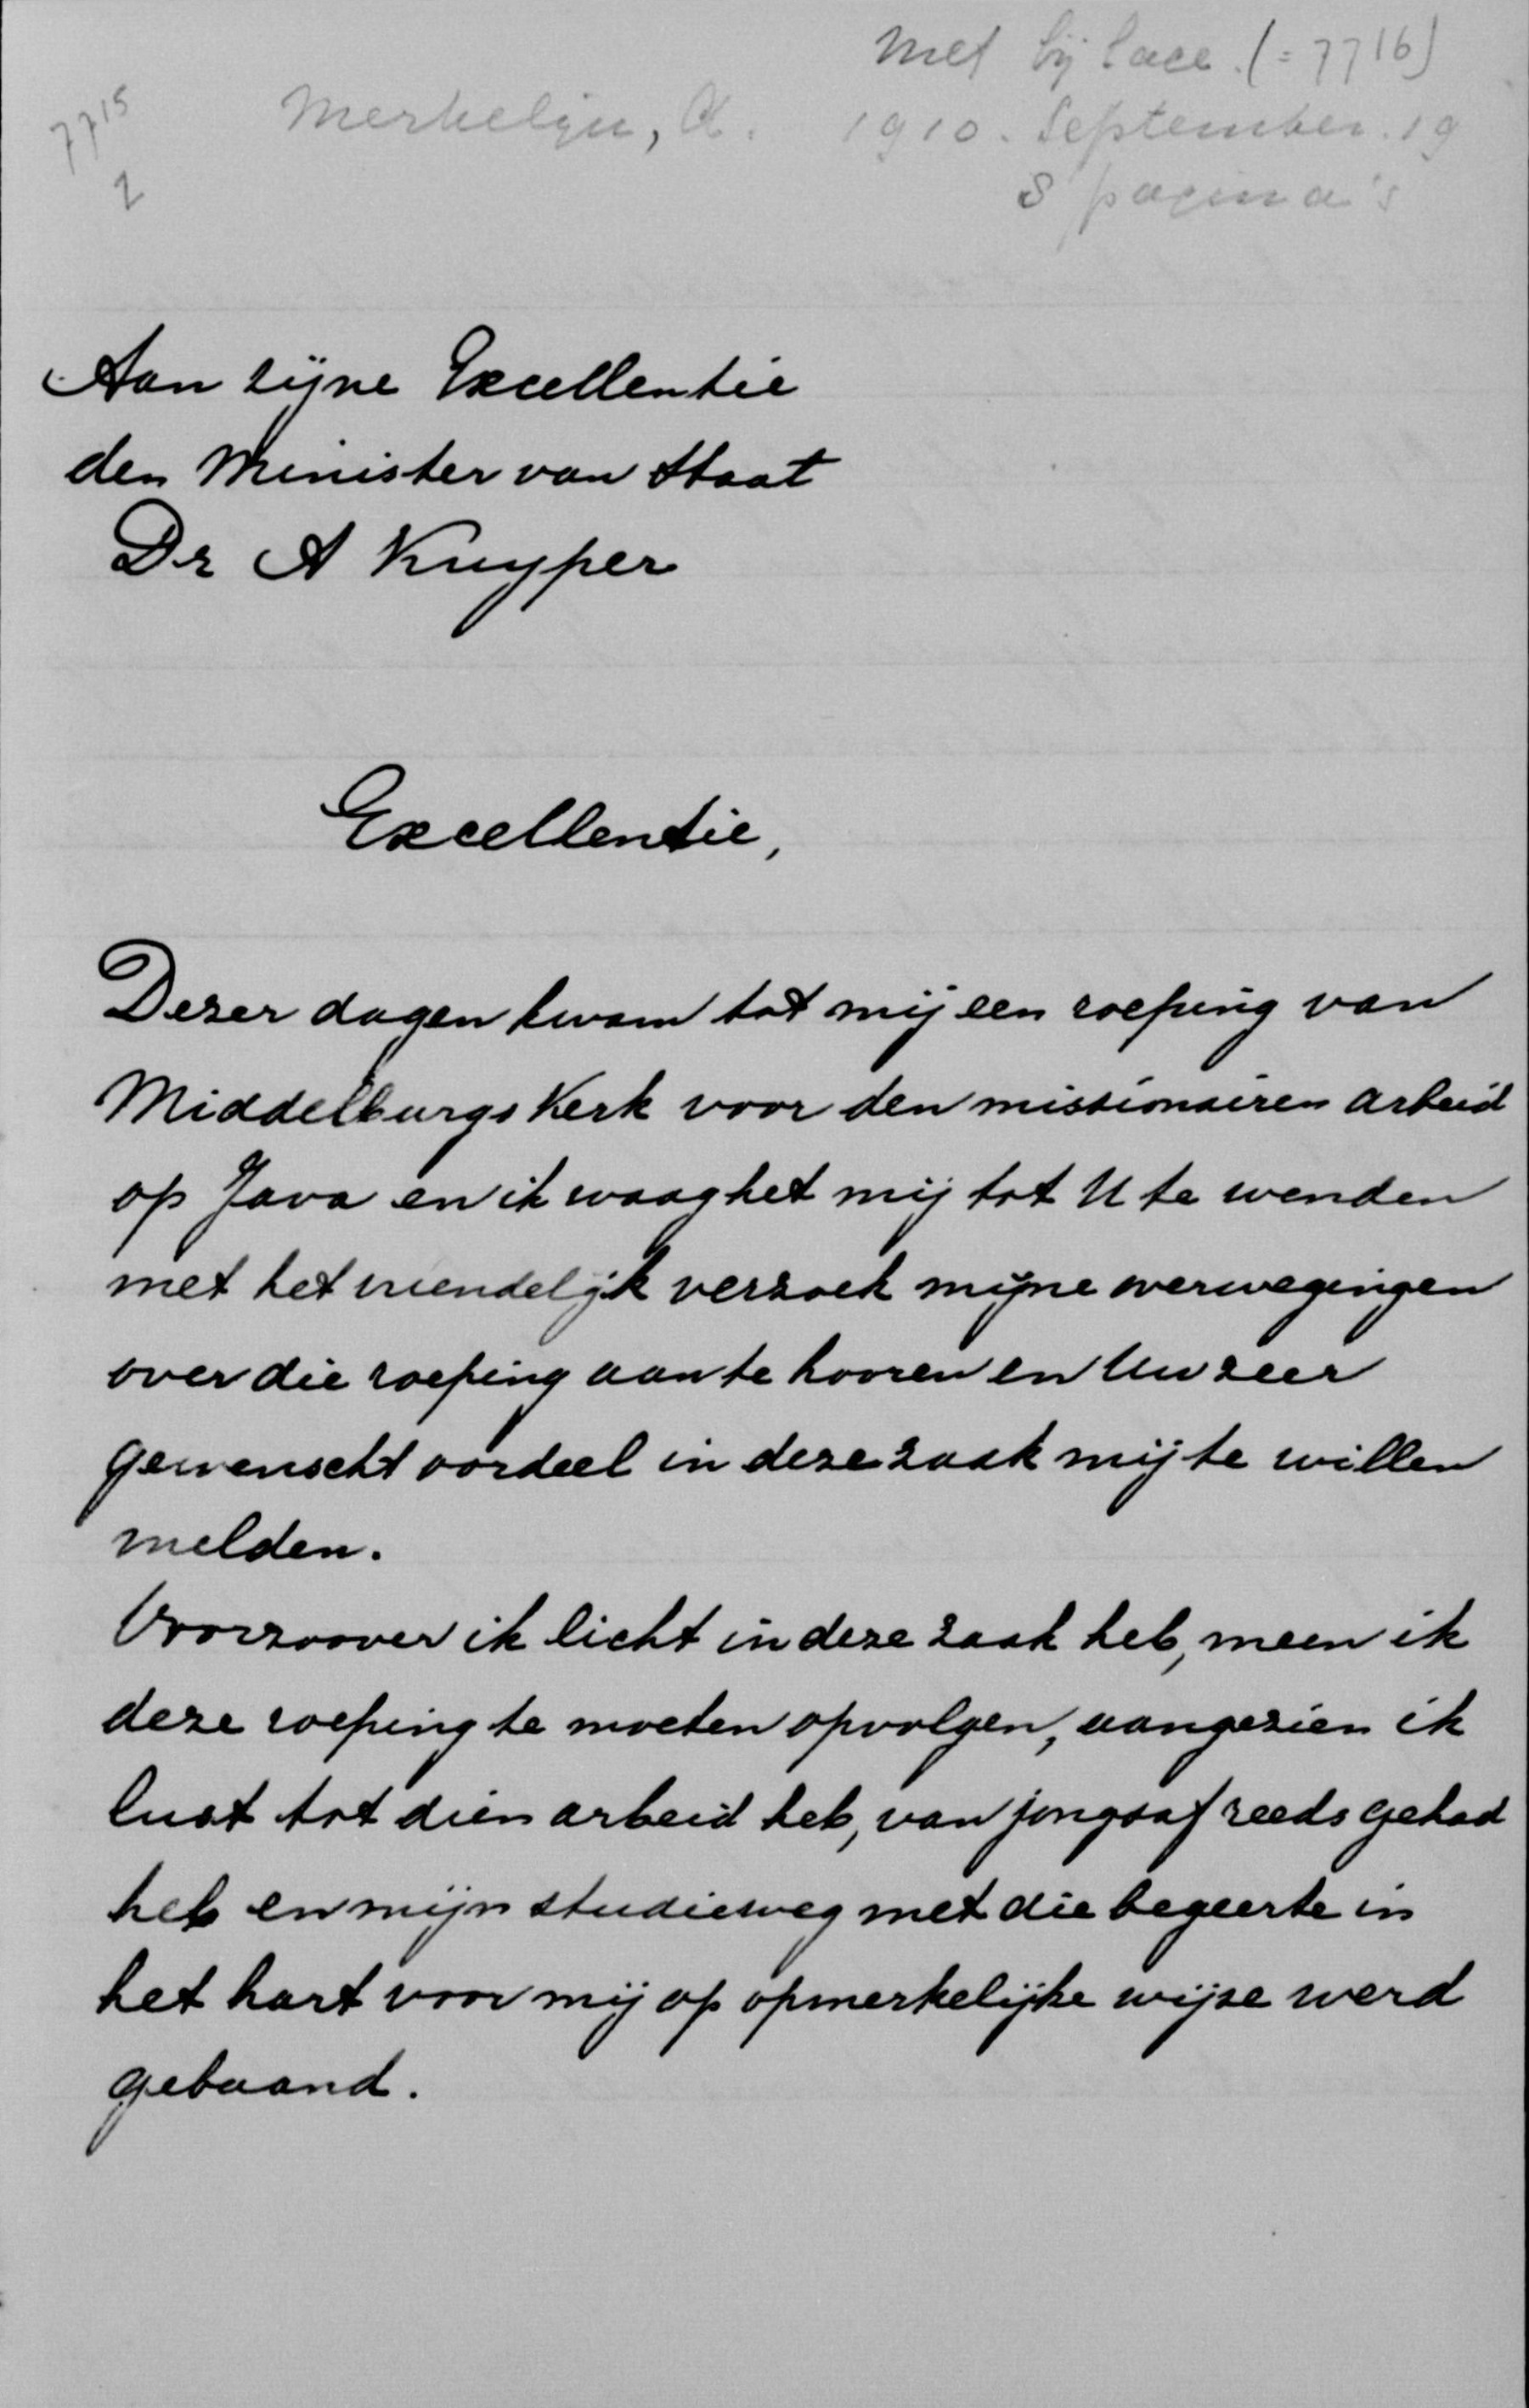 met bijlage (= 7716)
7715
Merkelijn, A. 1910. September. 19
2
8 pagina's
Aan zijne Excellentie
den Minister van Staat
Dr A Kuyper
Excellentie,
Dezer dagen kwam tot mij een roeping van
Middelburgs Kerk voor den missionairen arbeid
op Java en ik waag het mij tot U te wenden
met het vriendelijk verzoek mijne overwegingen
over die roeping aan te hooren en Uw zeer
gewenscht oordeel in deze zaak mij te willen
melden.
Voorzoover ik licht in deze zaak heb, meen ik
deze roeping te moeten opvolgen, aangezien ik
lust tot dien arbeid heb, van jongsaf reeds gehad
heb en mijn studieweg met die begeerte in
het hart voor mij op opmerkelijke wijze werd
gebaand.